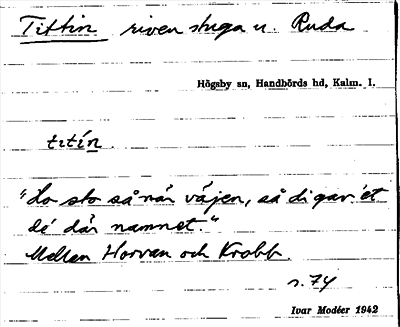 Tittin riven stuga u. Ruda
Högsby sn, Handbörds hd, Kalm. l.
titín.
"Ho sto så när väjen, så di gav 'et
dé där namnet."
Mellan Horvan och Krobb.
s. 74
Ivar Modéer 1942